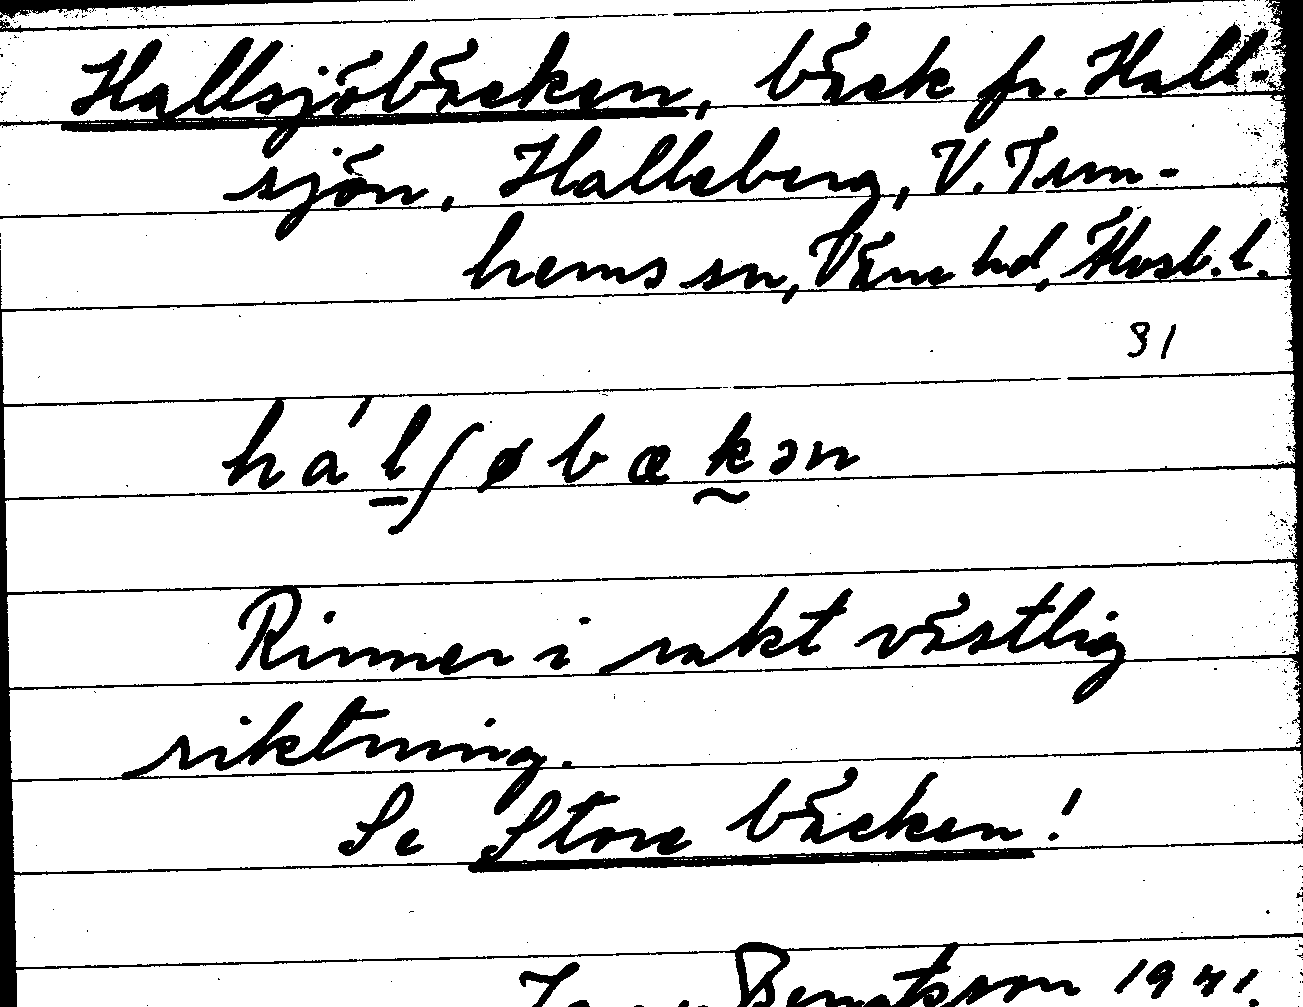 Hallsjöbäcken, bäck fr. Hall-
sjön, Halleberg, V. Tun-
hems sn, Väne hd, Älvsb. l.
91
ha´lʃøbækən
Rinner i rakt västlig
riktning.
Se Store bäcken!
Bengtsson 1941.